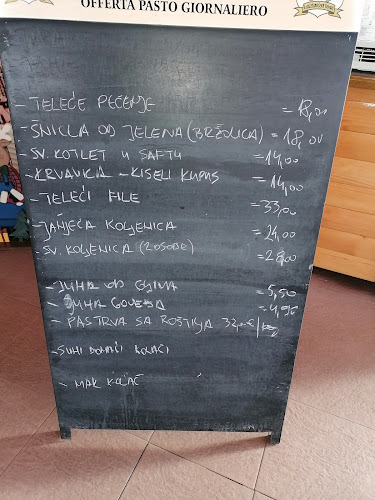 OFFERTA PASTO GIORNALIERO
- TELEĆE PEČENJE = 18,00
- ŠNICLA OD JELENA (BRŽOLICA) = 18,00
- SV. KOTLET U SAFTU = 14,00
- KRVAVICA - KISELI KUPUS = 14,00
- TELEĆI FILE = 33,00
- JANJEĆA KOLJENICA = 24,00
- SV. KOLJENICA (2 OSOBE) = 28,00
- JUHA OD GLJIVA = 5,50
- JUHA GOVEĐA = 4,95
- PASTRVA SA ROŠTILJA 32,00 € /kg
- SUHI DOMAĆI KOLAČI
- MAK KOLAČ